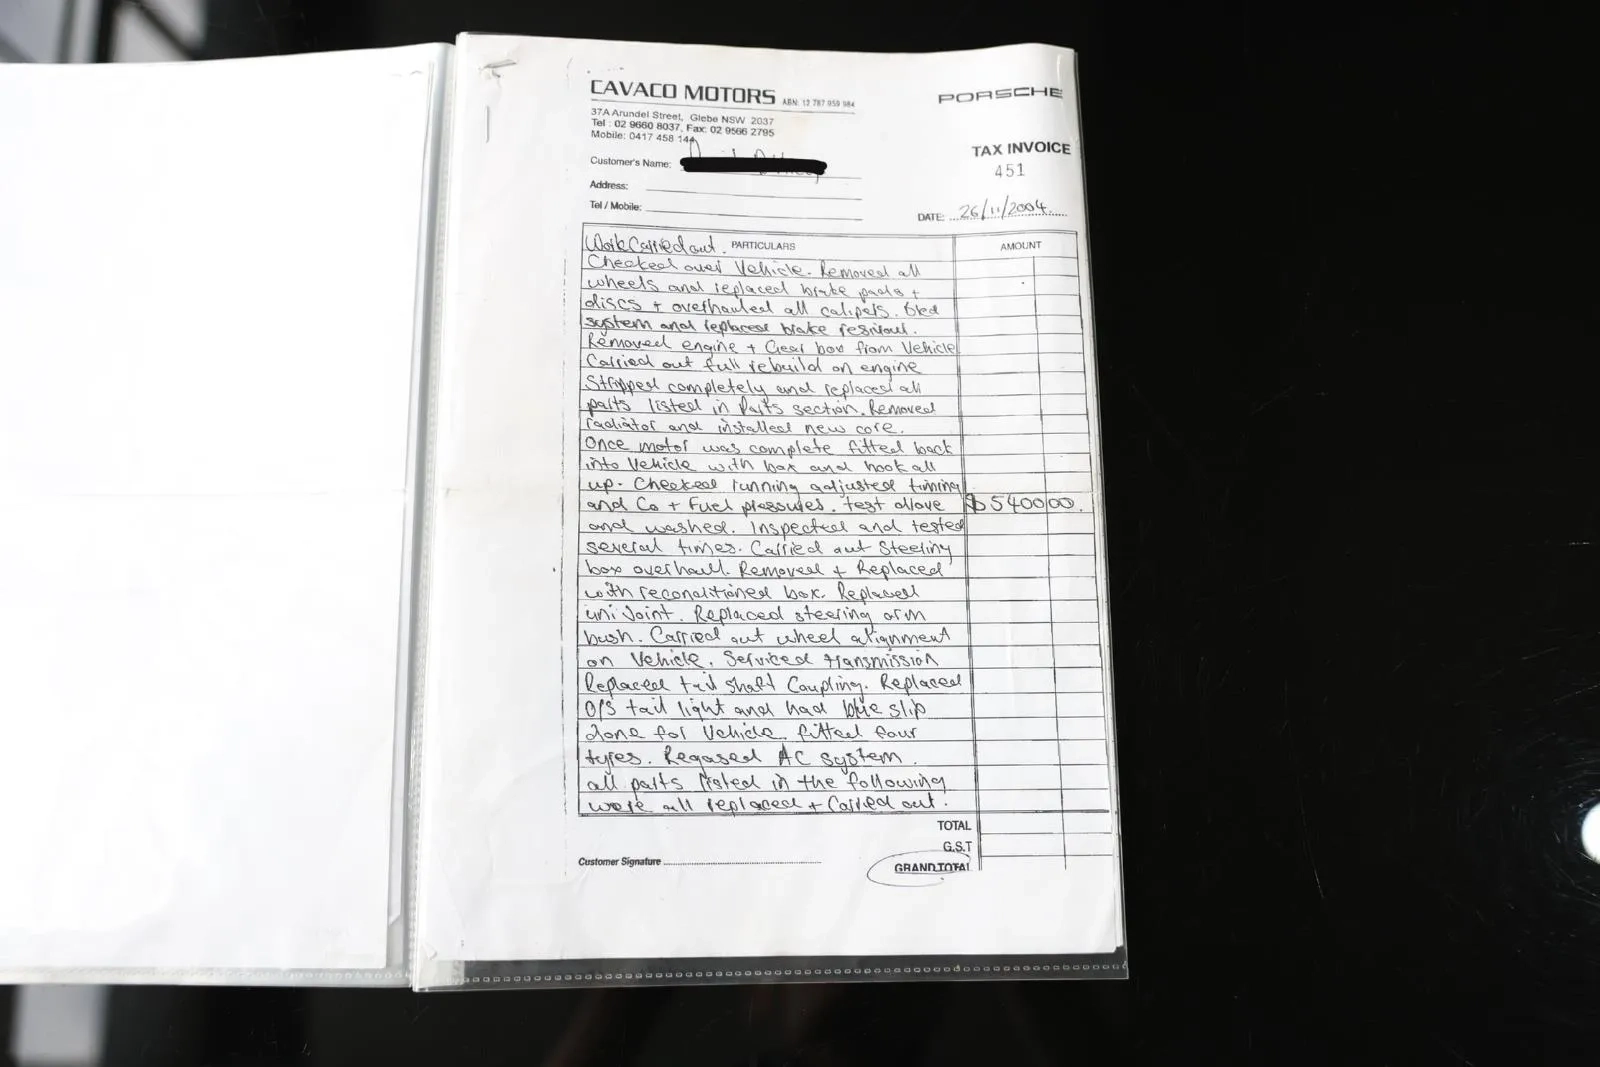 CAVACO MOTORS ABN: 12 787 959 984
PORSCHE
37A Arundel Street, Glebe NSW 2037
Tel : 02 9660 8037, Fax: 02 9566 2795
Mobile: 0417 458 144
TAX INVOICE
451
Customer's Name:
Address:
Tel / Mobile:
DATE: 26/11/2004
Work Carried out. PARTICULARS AMOUNT
Checked over Vehicle. Removed all
wheels and replaced brake pads +
discs + overhauled all calipers. bled
system and replaced brake
Removed engine + Gear box from Vehicle
Carried out full rebuild on engine
Stripped completely and replaced all
parts listed in Parts section. Removed
radiator and installed new core.
Once motor was complete fitted back
into Vehicle with box and hook all
up. Checked running adjusted timing
and Co + Fuel pressures. test drove $540000.
and washed. Inspected and tested
several times. Carried out Steering
box overhaull. Removed + Replaced
with reconditioned box. Replaced
uni Joint. Replaced steering arm
bush. Carried out wheel alignment
on Vehicle. Serviced transmission
Replaced tail shaft Coupling. Replaced
O/S tail light and had blue slip
done for Vehicle. fitted four
tyres. Regased AC system.
all parts listed in the following
were all replaced + Carried out.
TOTAL
G.S.T
Customer Signature
GRAND TOTAL